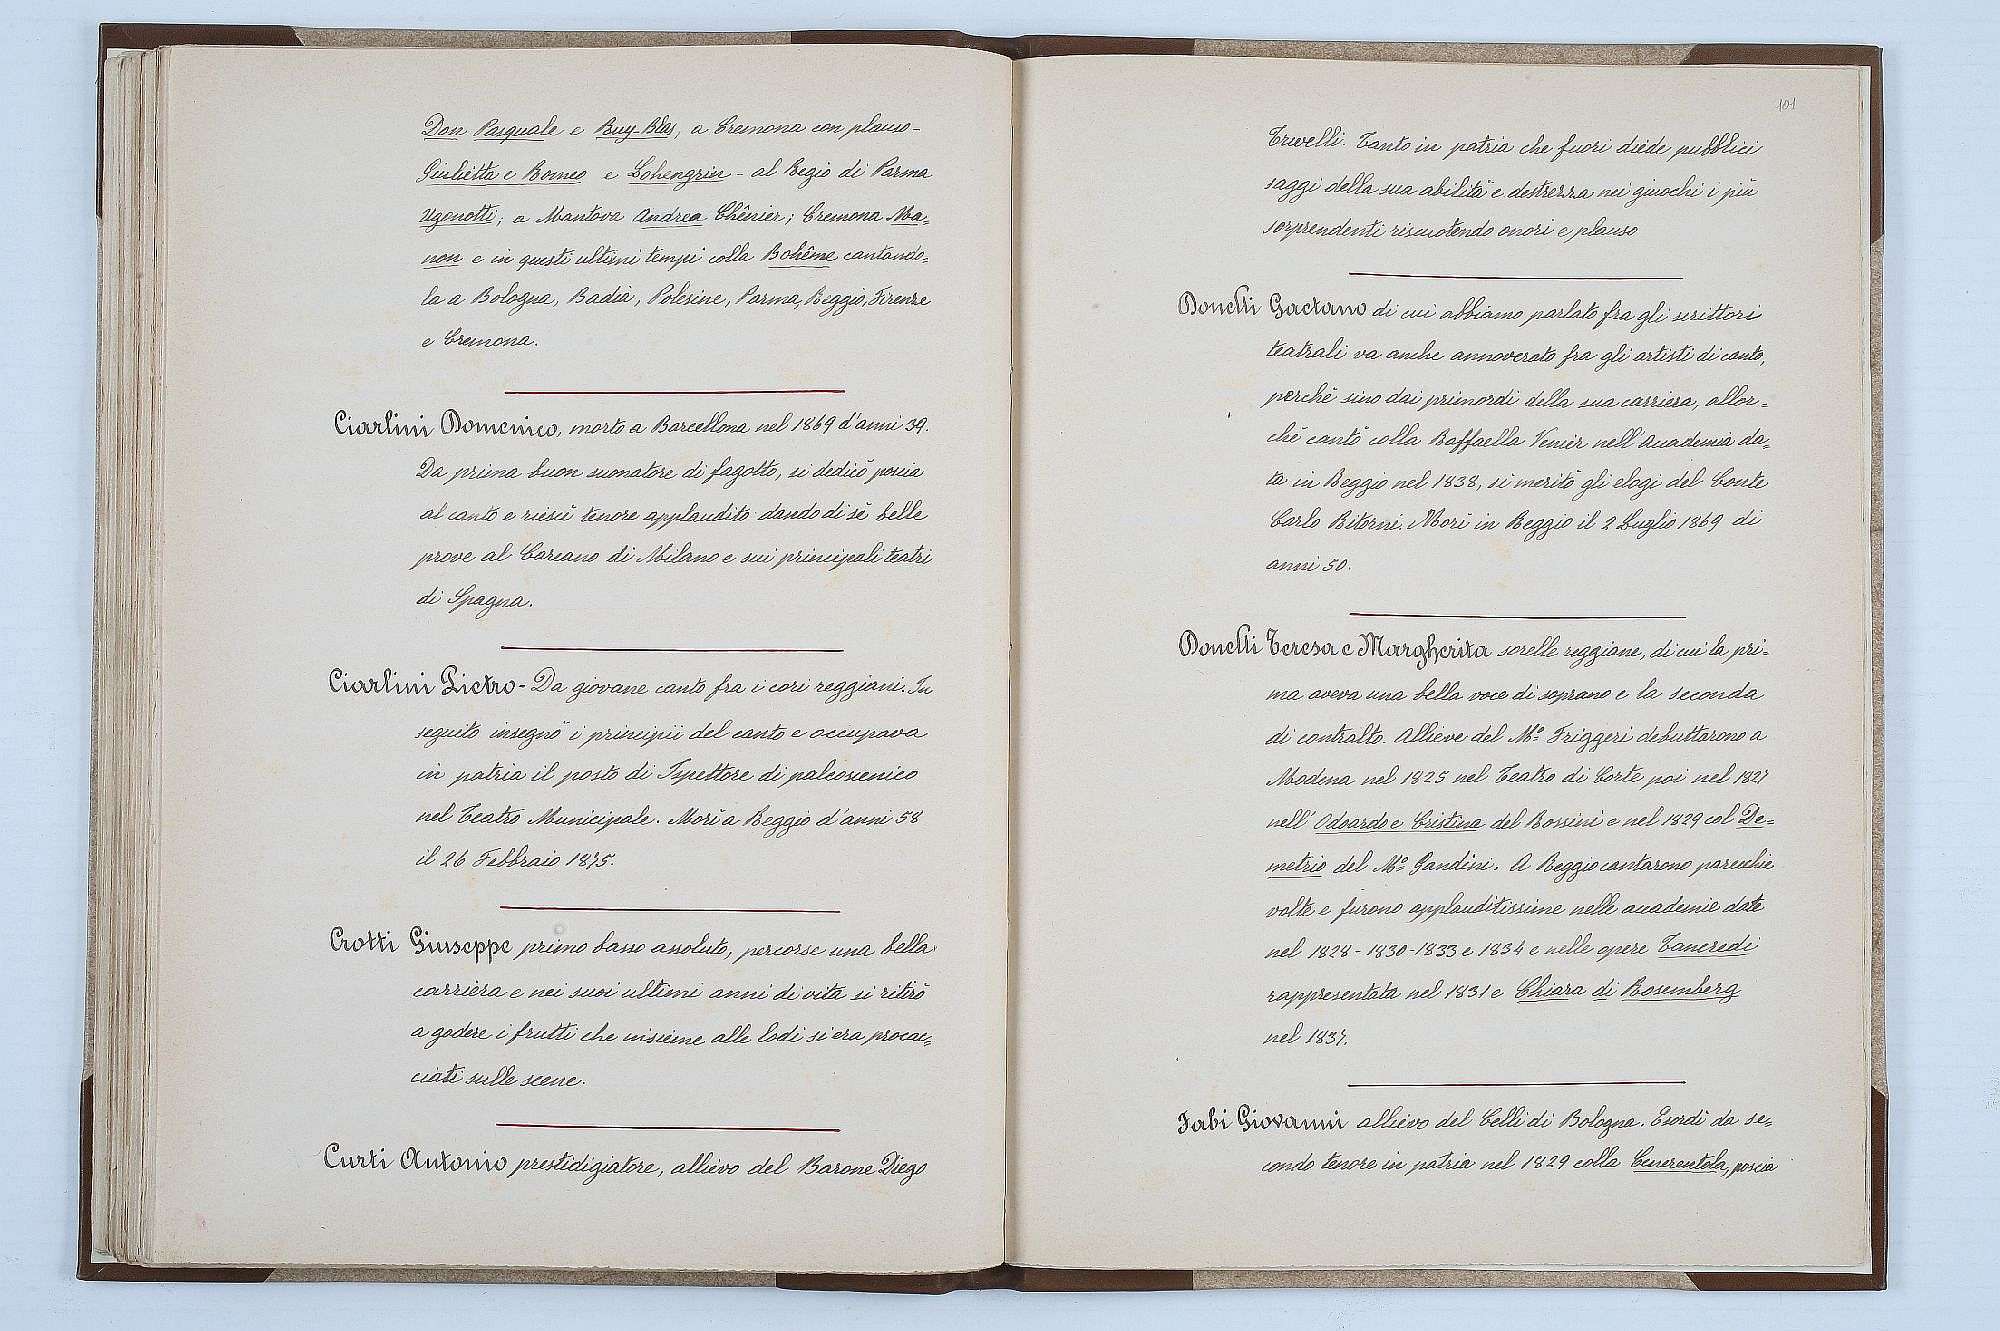 Don Pasquale e Ruy-Blas, a Cremona con plauso-
Giulietta e Romeo e Lohengrin - al Regio di Parma
Ugonotti; a Mantova Andrea Chênier; Cremona Ma=
non e in questi ultimi tempi colla Bohême cantando=
la a Bologna, Badia, Polesine, Parma, Reggio, Firenze
e Cremona.
Ciarlini Domenico, morto a Barcellona nel 1869 d'anni 39.
Da prima buon suonatore di fagotto, si dedicò poscia
al canto e riescì tenore applaudito dando di sè belle
prove al Carcano di Milano e sui principali teatri
di Spagna.
Ciarlini Pietro - Da giovane cantò fra i cori reggiani. In
seguito insegnò i principii del canto e occupava
in patria il posto di Ispettore di palcoscenico
nel Teatro Municipale. Morì a Reggio d'anni 58
il 26 Febbraio 1875.
Crotti Giuseppe primo basso assoluto, percorse una bella
carriera e nei suoi ultimi anni di vita si ritirò
a godere i frutti che insieme alle lodi si era procac=
ciati sulle scene.
Curti Antonio prestidigiatore, allievo del Barone Diego
101
Trivelli. Tanto in patria che fuori diede pubblici
saggi della sua abilità e destrezza nei giuochi i più
sorprendenti riscuotendo onori e plauso
Donelli Gaetano di cui abbiamo parlato fra gli scrittori
teatrali va anche annoverato fra gli artisti di canto,
perchè sino dai primordi della sua carriera, allor=
chè cantò colla Raffaella Venier nell'Accademia da=
ta in Reggio nel 1838, si meritò gli elogi del Conte
Carlo Ritorni. Morì in Reggio il 2 Luglio 1869 di
anni 50.
Donelli Teresa e Margherita sorelle reggiane, di cui la pri=
ma aveva una bella voce di soprano e la seconda
di contralto. Allieve del Mº Friggeri debuttarono a
Modena nel 1825 nel Teatro di Corte poi nel 1827
nell'Odoardo e Cristina del Rossini e nel 1829 col De=
metrio del Mº Gandini. A Reggio cantarono parecchie
volte e furono applauditissime nelle accademie date
nel 1828 - 1830 - 1833 e 1834 e nelle opere Tancredi
rappresentata nel 1831 e Chiara di Rosemberg
nel 1837.
Fabi Giovanni allievo del Celli di Bologna. Esordì da se=
condo tenore in patria nel 1829 colla Cenerentola, poscia